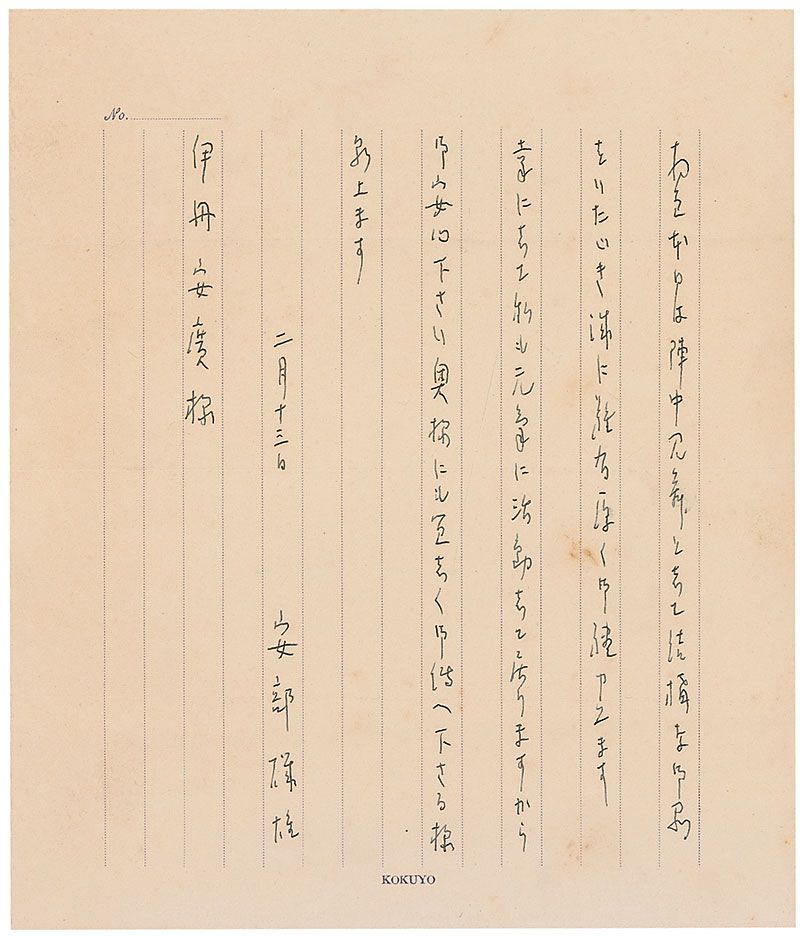 No.
拝啓 本日は陣中見舞として結構な御品
をいただき誠に難有厚く御礼申上ます
幸に して私も元気に活動して居りますから
御安心下さい 奥様にも宜しく御傳へ下さる様
願上ます
二月十三日
安部磯雄
伊丹安廣様
KOKUYO